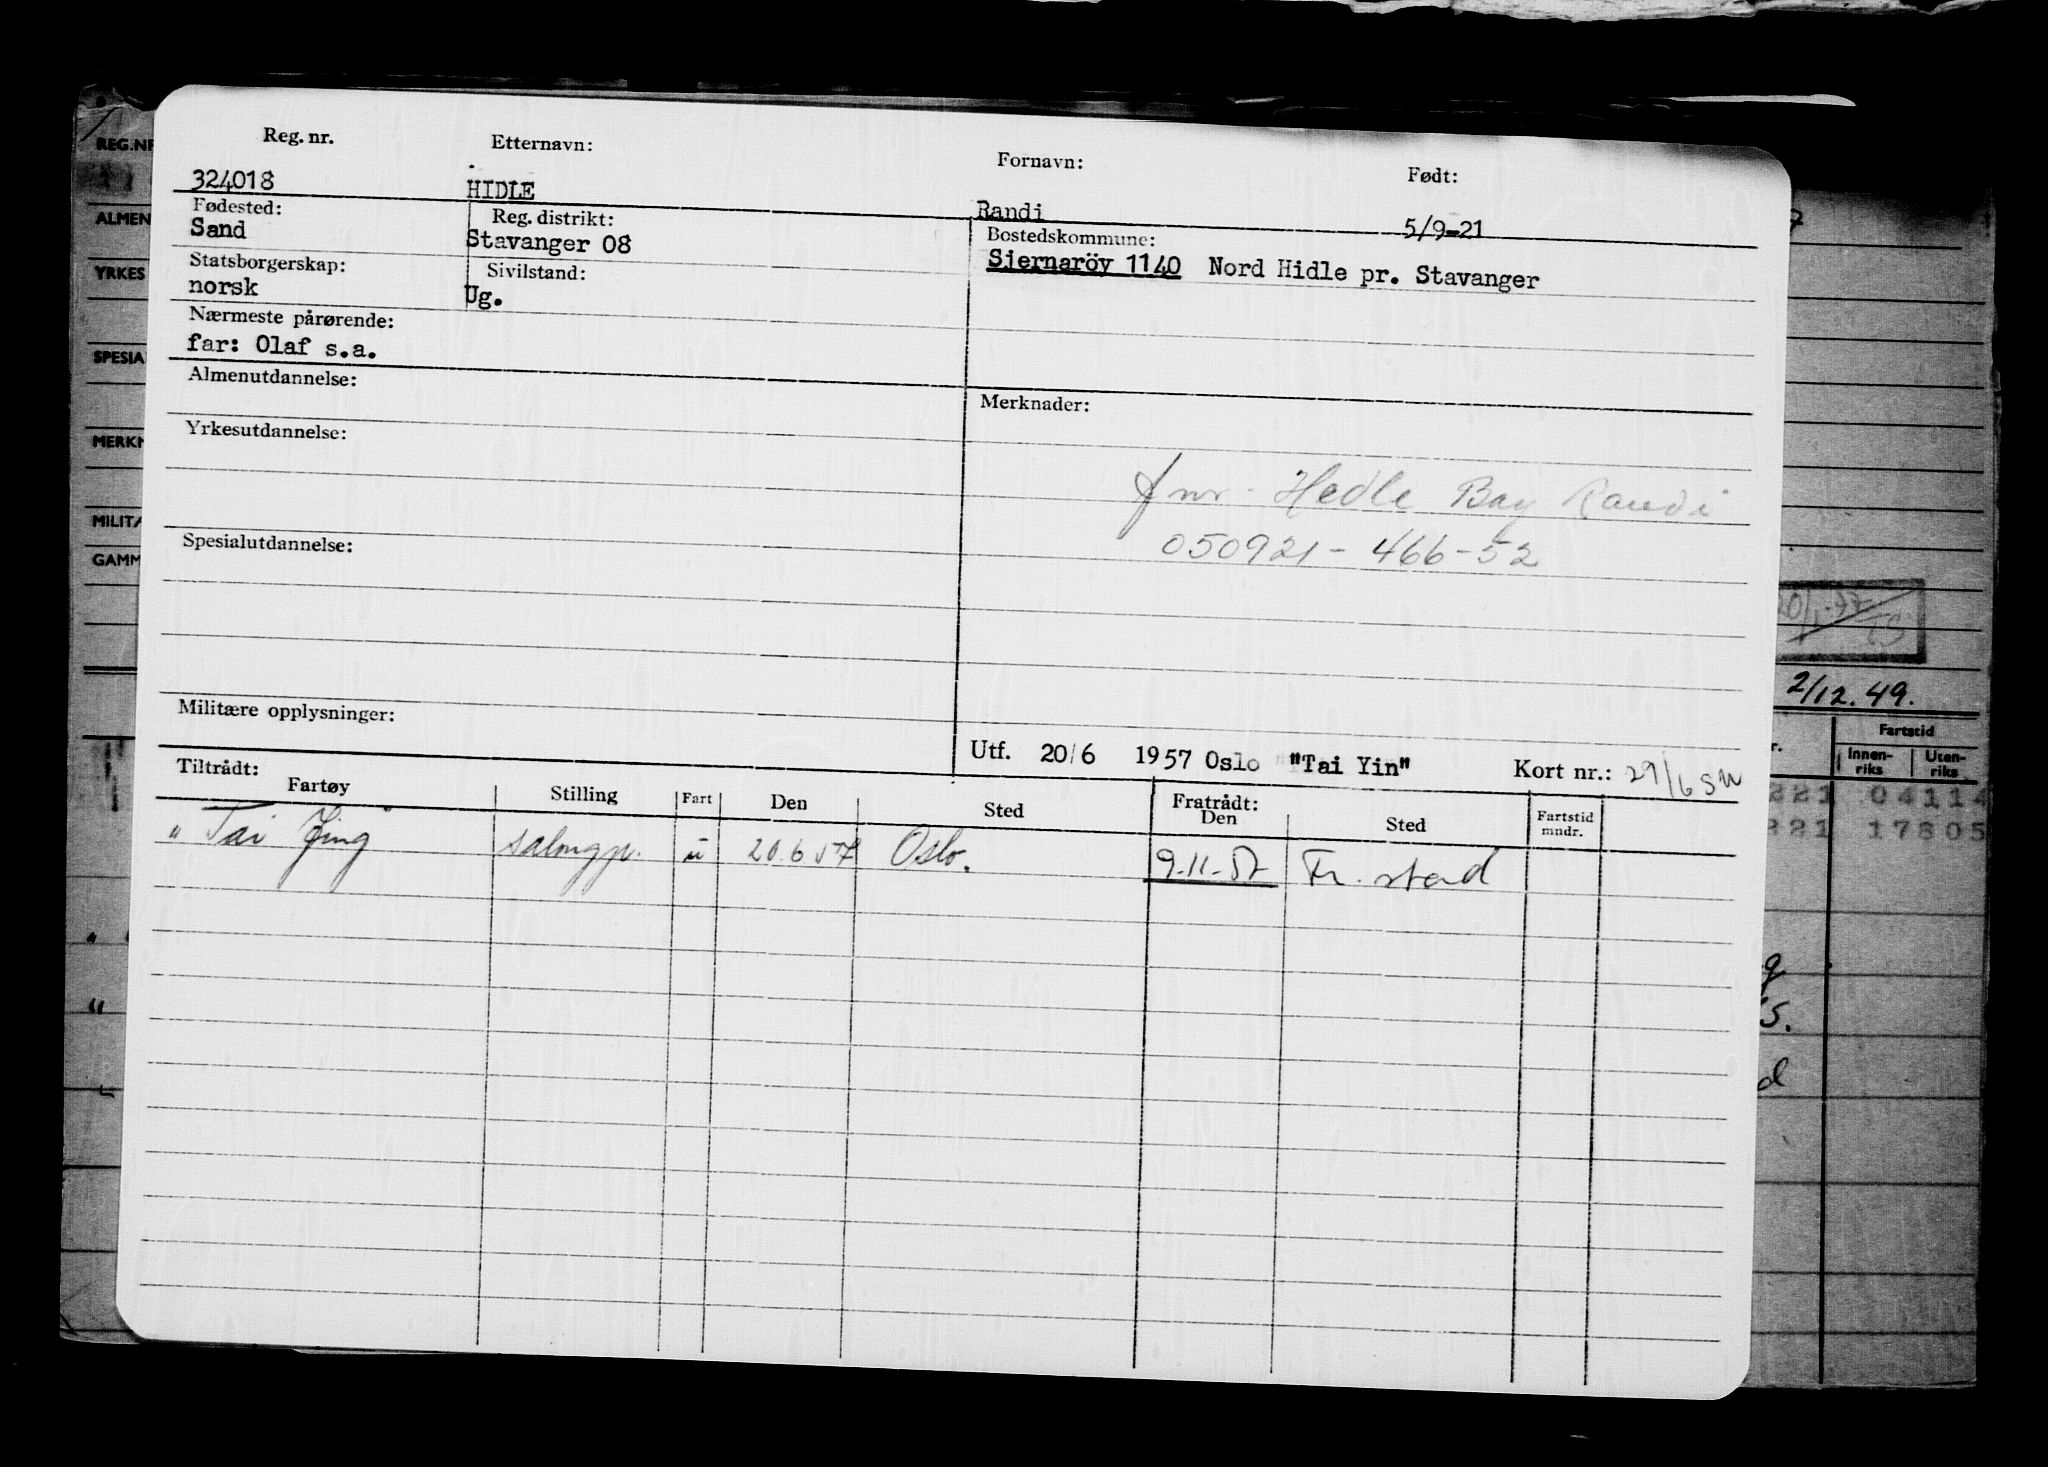 Reg. nr. Etternavn: Fornavn: Født:
324018 HIDLE Randi 5/9-21
Fødested: Reg. distrikt: Bostedskommune:
Sand Stavanger 08 Sjernaröy 1140 Nord Hidle pr. Stavanger
Statsborgerskap: Sivilstand:
norsk Ug.
Nærmeste pårørende:
far: Olaf s.a.
Almenutdannelse: Merknader:
Yrkesutdannelse:
fnr. Hedle Bay Randi
050921-466-52
Spesialutdannelse:
Militære opplysninger:
Utf. 20/6 1957 Oslo "Tai Yin" Kort nr.: 29/6 SW
Tiltrådt: Fratrådt:
Fartøy Stilling Fart Den Sted Den Sted Fartstid mndr.
"Tai Jing" salongp. u 20.6 57 Oslo. 9-11-57 Fr. stad
REG.NR
ALMEN
YRKES
SPESIA
MERKN
MILITÆ
GAMM
20/1-77
2/12.49.
Fartstid
Innen-riks Uten-riks
221 04114
221 17805